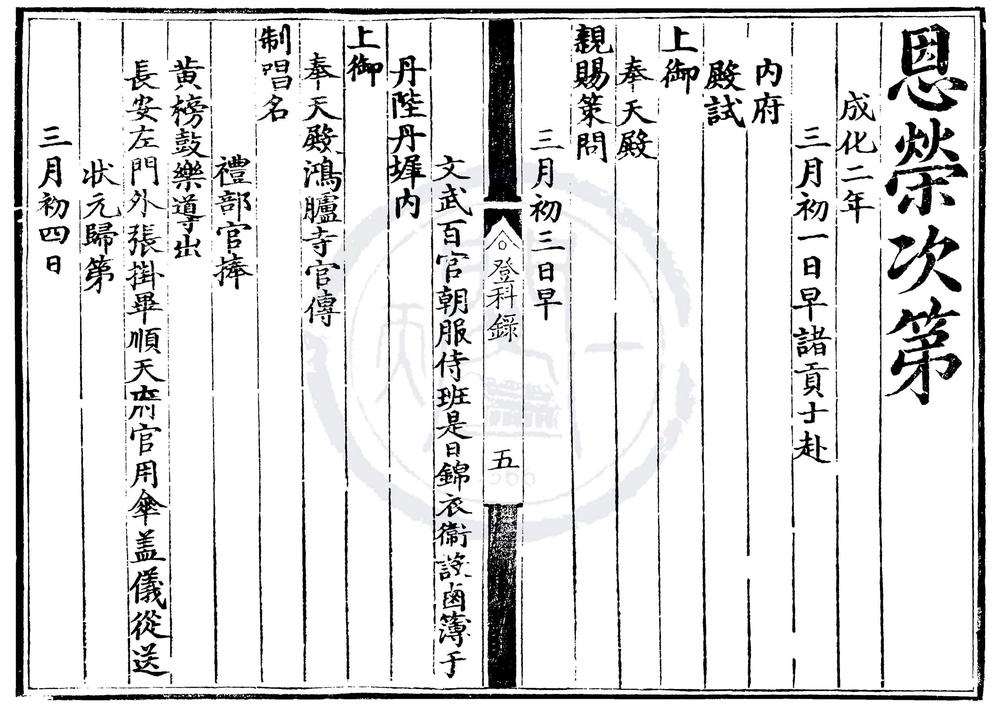 恩榮次第
成化二年
三月初一日早諸貢士赴
内府
殿試
上御
奉天殿
親賜策問
三月初三日早
登科錄
五
文武百官朝服侍班是日錦衣衞設鹵簿于
丹陛丹墀内
上御
奉天殿鴻臚寺官傳
制唱名
禮部官捧
黄榜鼓樂導出
長安左門外張掛畢順天府官用傘盖儀從送
狀元歸第
三月初四日